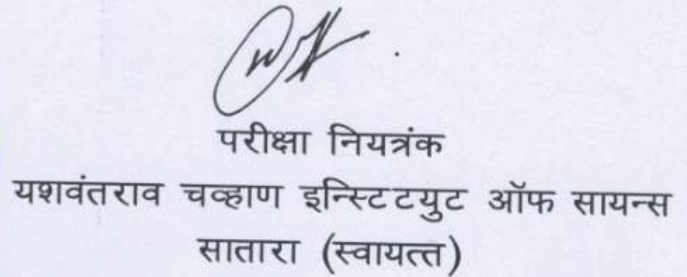 परीक्षा नियत्रंक
यशवंतराव चव्हाण इन्स्टिटयुट ऑफ सायन्स
सातारा (स्वायत्त)